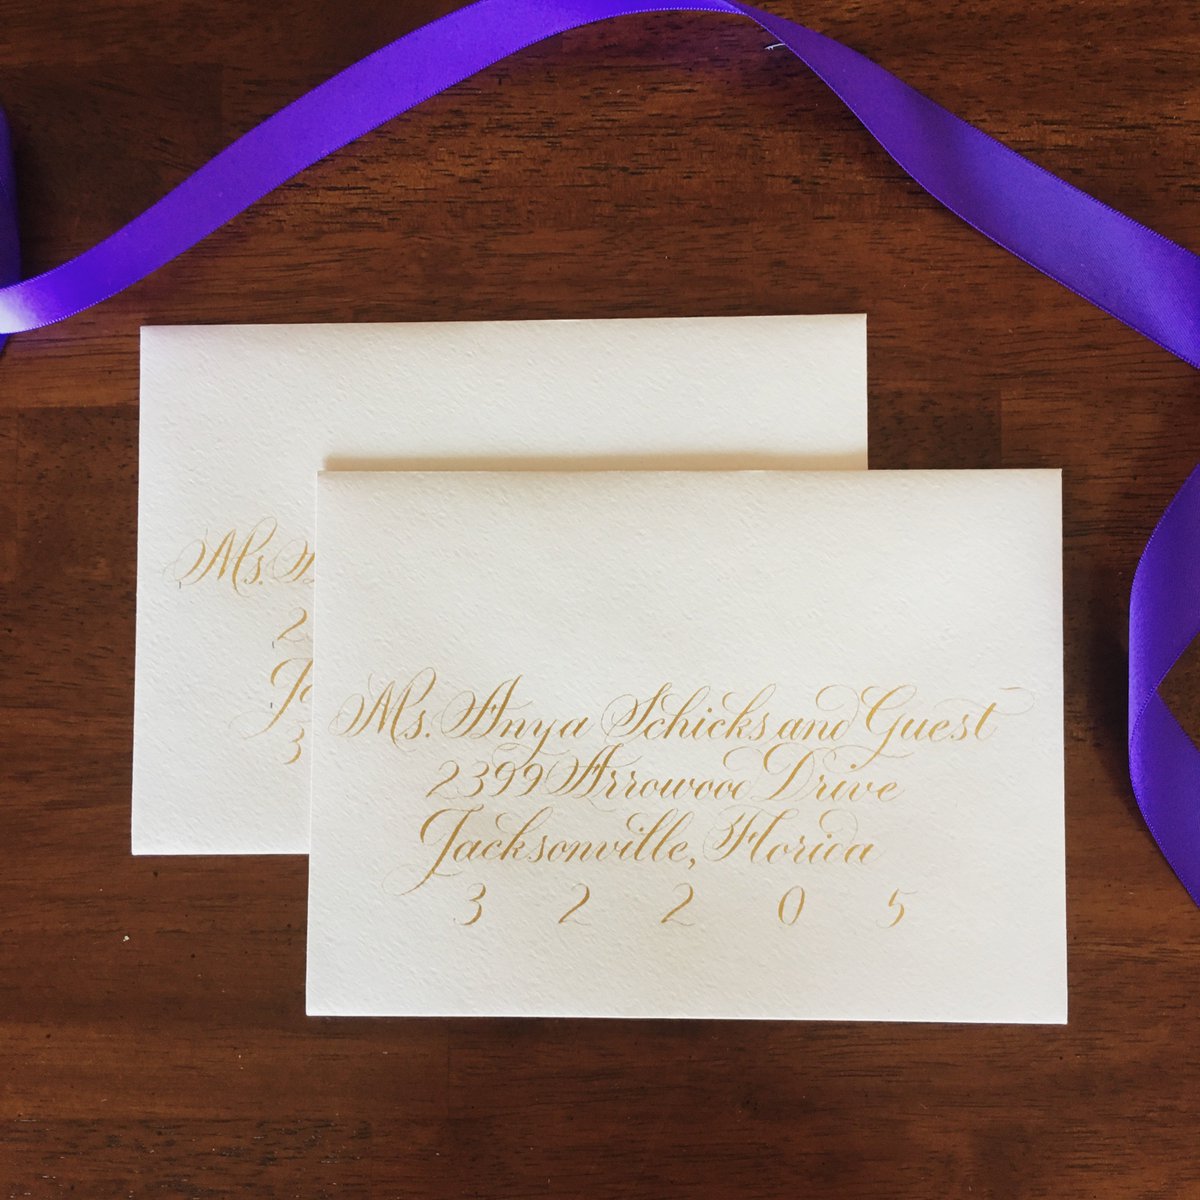 Ms. Anya Schicks and Guest
2399 Arrowood Drive
Jacksonville, Florida
3 2 2 0 5
Ms. A
2
Ja
3